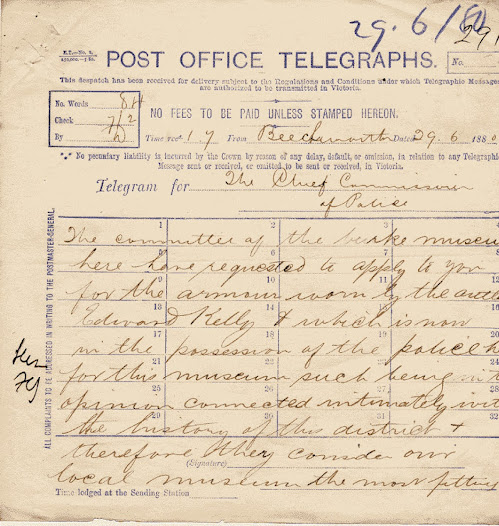 29.6/80
291
E.T.—No. 2.
POST OFFICE TELEGRAPHS.
No.
This despatch has been received for delivery subject to the Regulations and Conditions under which Telegraphic Messages
are authorized to be transmitted in Victoria.
No. Words 84
Check 7/2
By
NO FEES TO BE PAID UNLESS STAMPED HEREON.
Time rec 1 7 From Beechworth Dated 29.6 1880
No pecuniary liability is incurred by the Crown by reason of any delay, default, or omission, in relation to any Telegraphic
Message sent or received, or omitted to be sent or received, in Victoria.
Telegram for The Chief Commissioner
of Police
1 2 3 4
The committee of the burke museum
5 6 7 8
here have requested to apply to you
9 10 11 12
for the armour worn by the outla
13 14 15 16
Edward Kelly & which is now
17 18 19 20
in the possession of the police h
21 22 23 24
for this museum such being in
25 26 27 28
opinion connected intimately wit
29 30 31 32
the history of this district &
therefore they consider our
(Signature)
local museum the most fitting
Time lodged at the Sending Station
ALL COMPLAINTS TO BE ADDRESSED IN WRITING TO THE POSTMASTER-GENERAL.